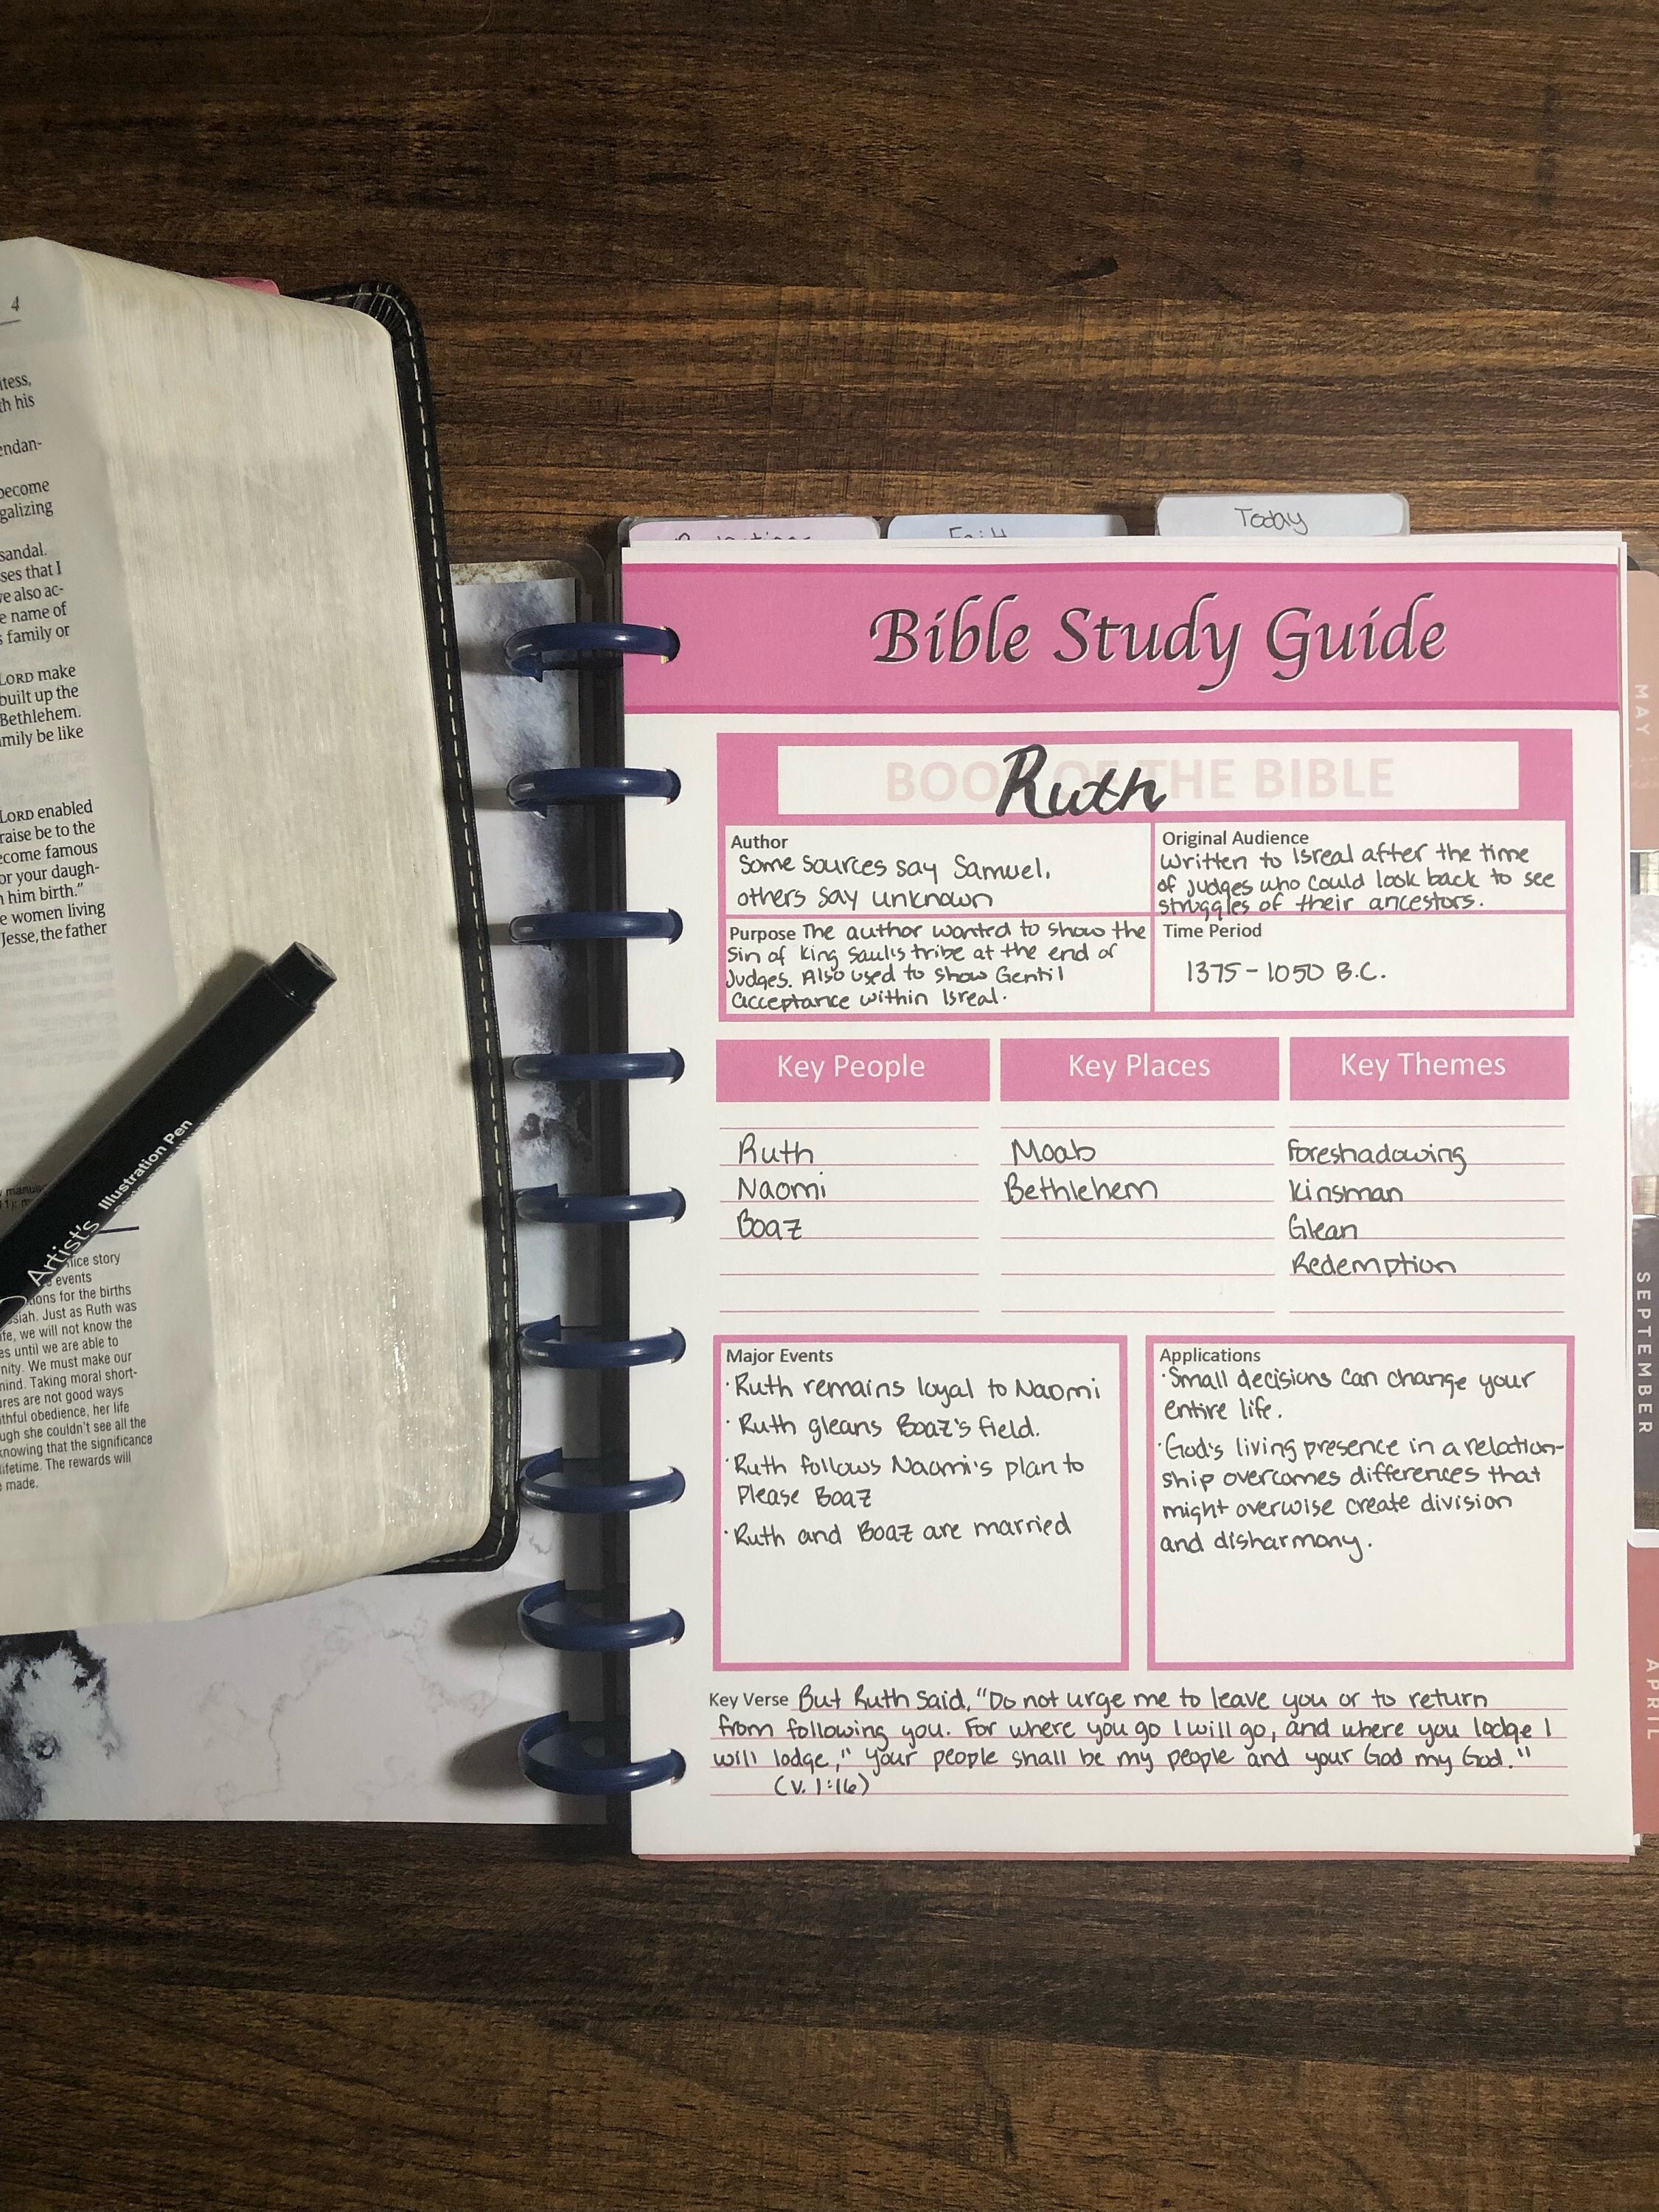 4
itess,
th his
endan-
become
galizing
sandal.
ses that I
ve also ac-
e name of
s family or
LORD make
built up the
Bethlehem.
mily be like
LORD enabled
raise be to the
ecome famous
or your daugh-
n him birth."
e women living
Jesse, the father
Artist's Illustration Pen
nice story
events
tions for the births
siah. Just as Ruth was
ife, we will not know the
es until we are able to
nity. We must make our
mind. Taking moral short-
ures are not good ways
ithful obedience, her life
ugh she couldn't see all the
knowing that the significance
lifetime. The rewards will
made.
Today
Bible Study Guide
BOOK OF THE BIBLE
Ruth
Author
Some sources say Samuel,
others say unknown
Original Audience
written to Isreal after the time
of Judges who could look back to see
struggles of their ancestors.
Purpose The author wanted to show the
sin of king Saul's tribe at the end of
Judges. Also used to show Gentil
acceptance within Isreal.
Time Period
1375-1050 B.C.
Key People
Ruth
Naomi
Boaz
Key Places
Moab
Bethlehem
Key Themes
Foreshadowing
Kinsman
Glean
Redemption
Major Events
·Ruth remains loyal to Naomi
·Ruth gleans Boaz's field.
·Ruth follows Naomi's plan to
please Boaz
·Ruth and Boaz are married
Applications
·Small decisions can change your
entire life.
·God's living presence in a relation-
ship overcomes differences that
might overwise create division
and disharmony.
Key Verse But Ruth said, "Do not urge me to leave you or to return
from following you. For where you go I will go, and where you lodge I
will lodge," your people shall be my people and your God my God."
(v. 1:16)
MAY
SEPTEMBER
APRIL